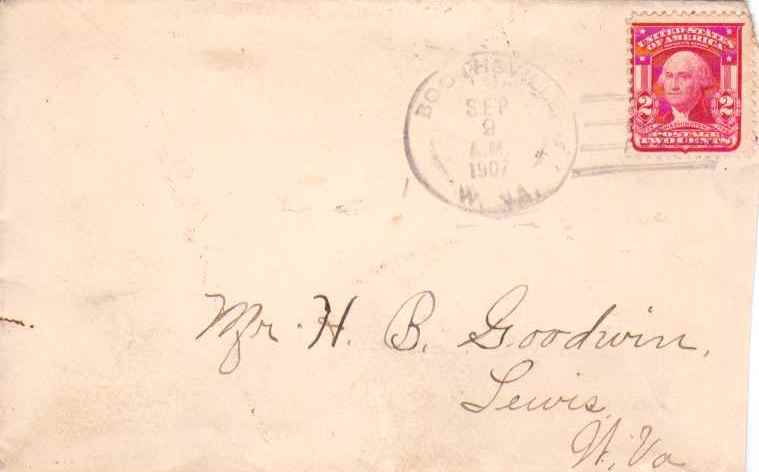 UNITED STATES
OF AMERICA
2 2
POSTAGE
TWO CENTS
BOOTHSVILLE
SEP
9
A.M.
1907
W. VA.
Mr. H. B. Goodwin,
Lewis,
W. Va